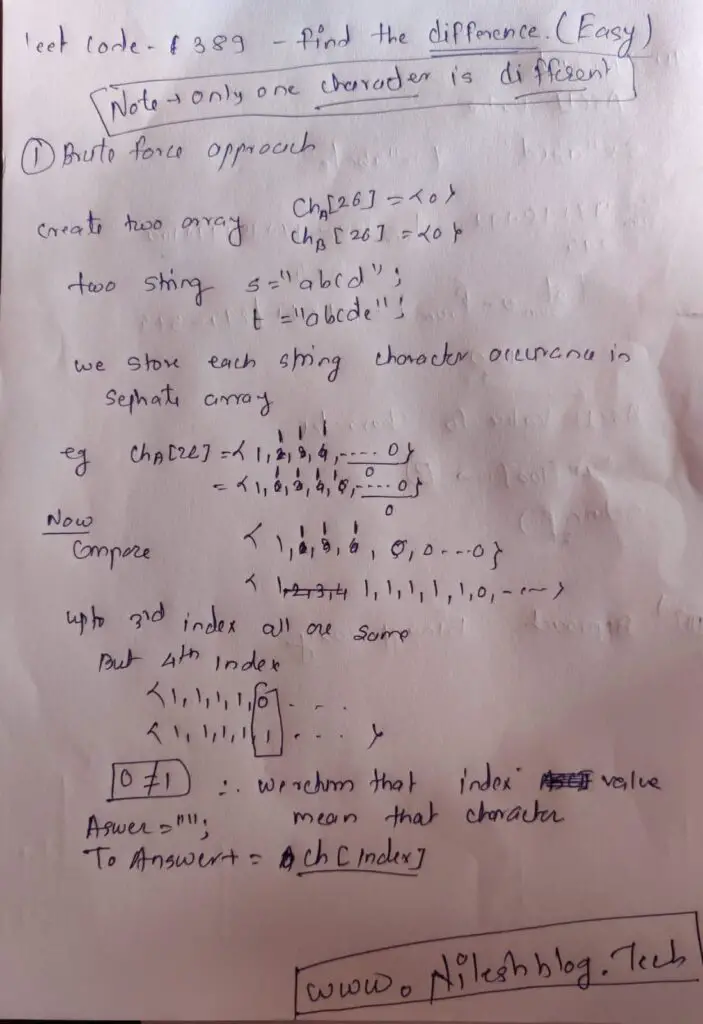 leet code - 389 - find the difference. (Easy)
Note → only one character is different
① Bruto force approach
create two array ChA[26] = {0}
ChB[26] = {0}
two string s="abcd";
t ="abcde";
we store each string character occurance in
Sephate array
eg ChA[26] = { 1, 1, 1, 1, ..... 0}
= { 1, 1, 1, 1, 1, ..... 0}
Now
Compare { 1, 1, 1, 1, 0, 0 ... 0}
{ 1, 1, 1, 1, 1, 1, 0, ... }
upto 3rd index all are same
But 4th Index
{1, 1, 1, 1, 0 ...
{1, 1, 1, 1, 1 .... }
0 ≠ 1 ∴ we return that index value
Aswer = ""; mean that character
To Answer + = ch [Index]
www.Nileshblog.Tech